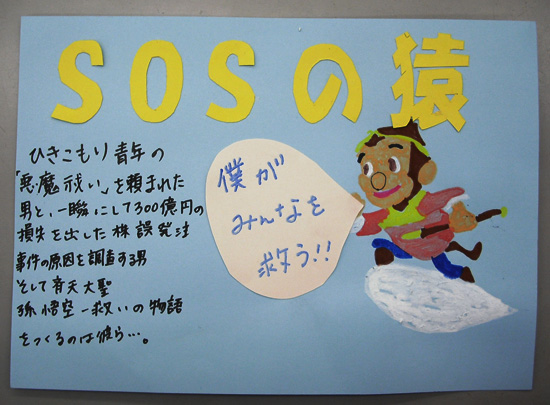 SOSの猿
ひきこもり青年の
「悪魔祓い」を頼まれた
男と、一瞬にして300億円の
損失を出した株誤発注
事件の原因を調査する男
そして斉天大聖
孫悟空ー救いの物語
をつくるのは彼ら…。
僕が
みんなを
救う!!